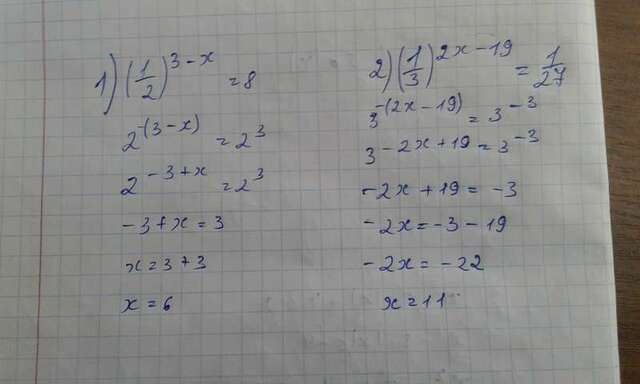 1) (1/2)^(3-x) = 8
2^(-(3-x)) = 2^3
2^(-3+x) = 2^3
-3+x = 3
x = 3+3
x = 6
2) (1/3)^(2x-19) = 1/27
3^(-(2x-19)) = 3^(-3)
3^(-2x+19) = 3^(-3)
-2x+19 = -3
-2x = -3-19
-2x = -22
x = 11